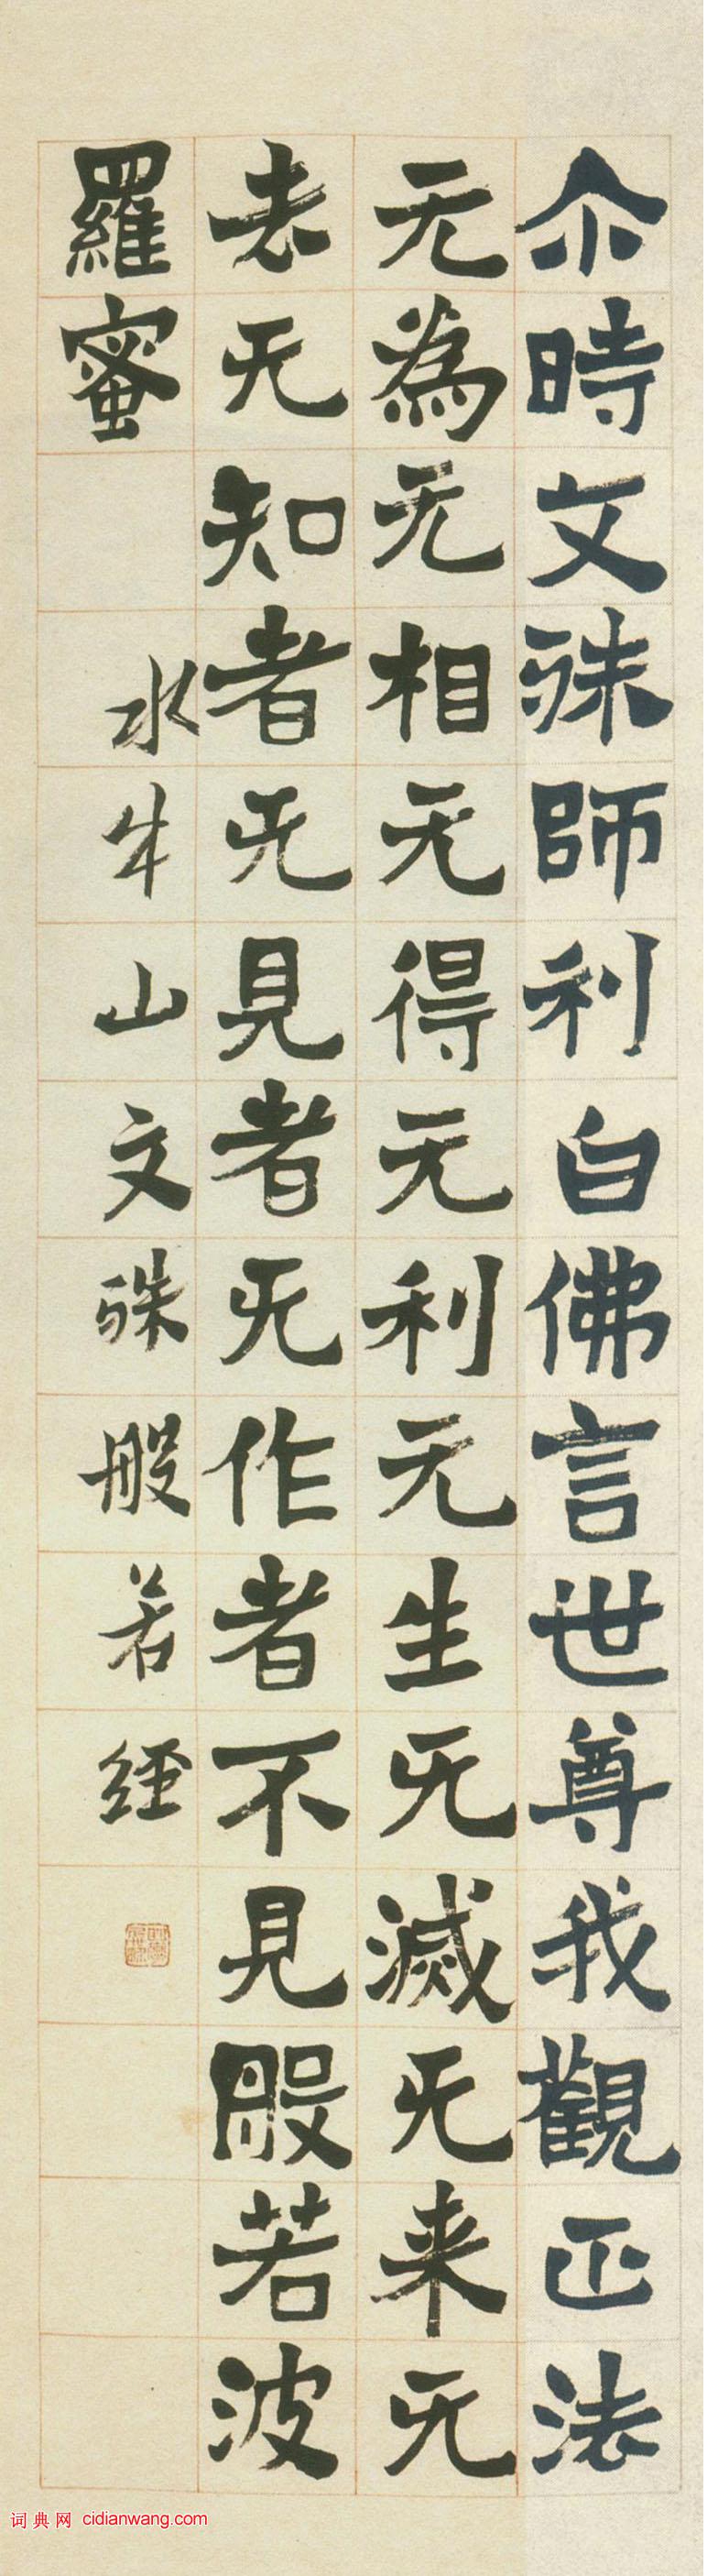 尒時文殊師利白佛言世尊我觀正法
无為无相无得无利无生无滅无来无
去无知者无見者无作者不見般若波
羅蜜
水牛山文殊般若经
词典网 cidianwang.com